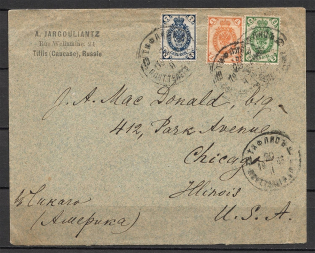 A. JARGOULIANTZ
Tiflis (Caucase), Russie
ТИФЛИСЪ
J. A. Mac Donald, Esq.
412, Park Avenue
Chicago
Illinois
U. S. A.
въ Чикаго
(Америка)
ТИФЛИСЪ